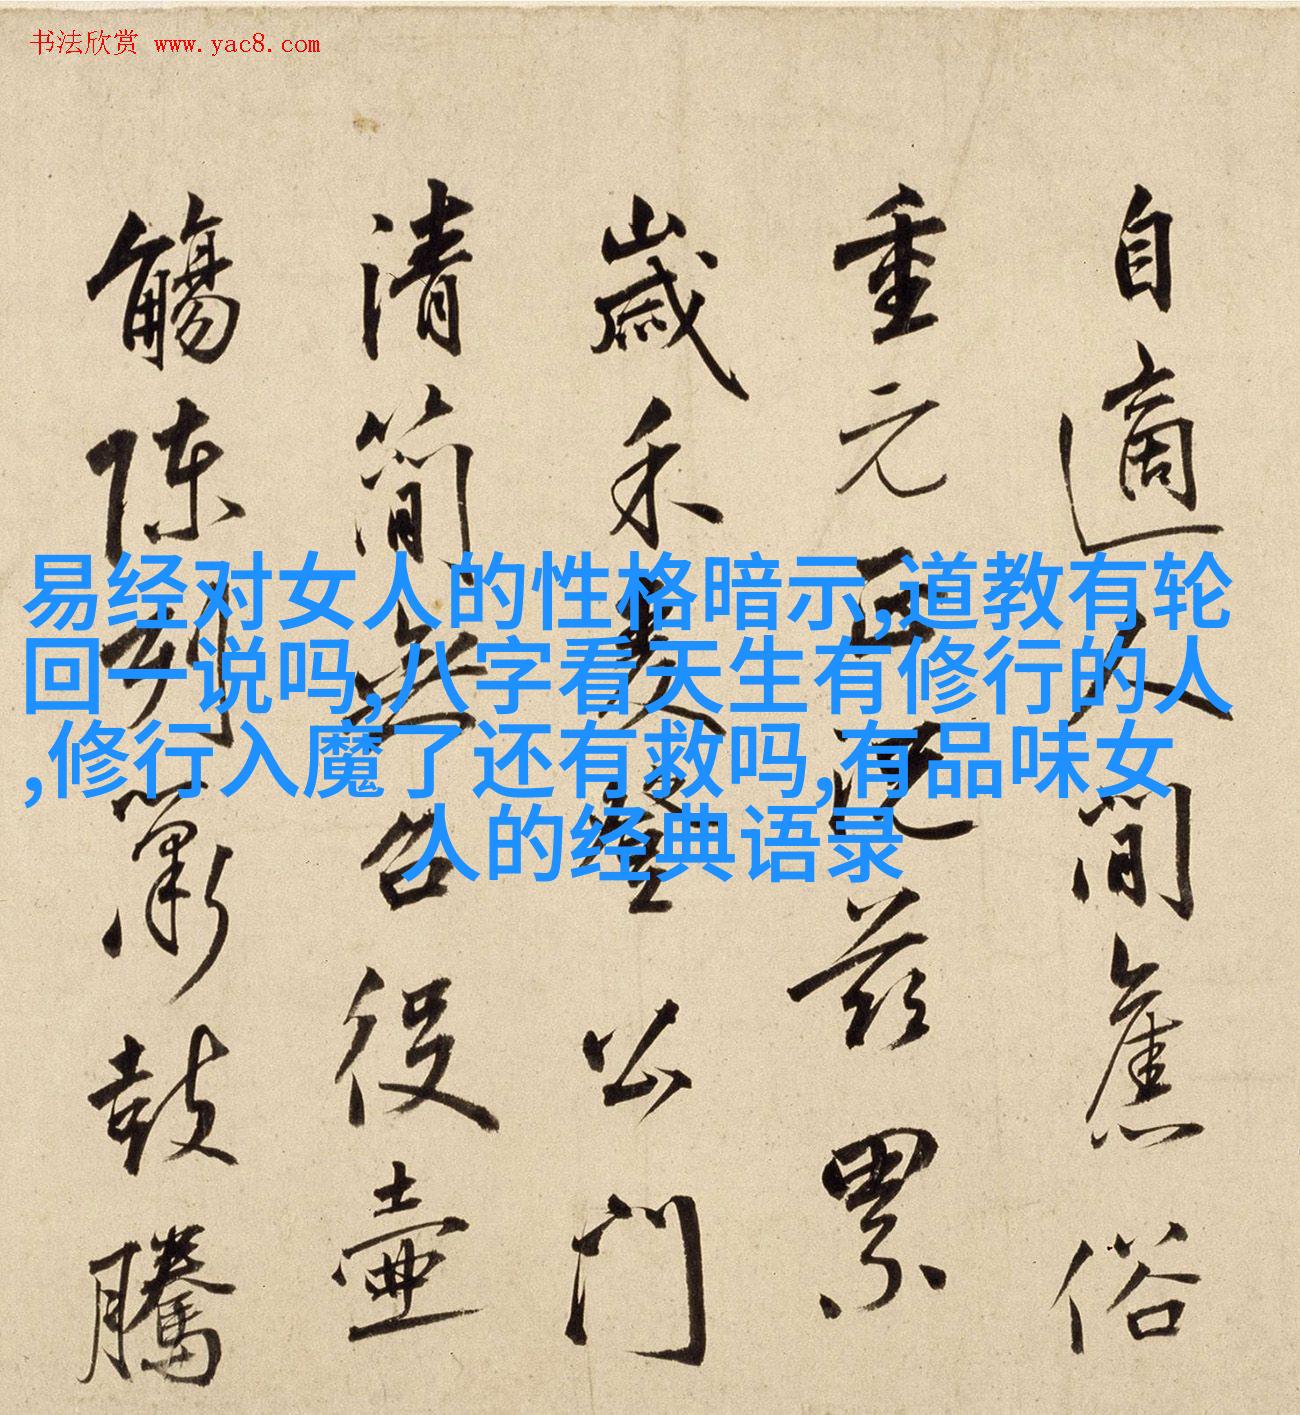 书法欣赏 www.yac8.com
自適人間舊俗
重元正況兹累
歲禾麥登公門
清簡無召役壺
觴陳列簫鼓騰
易经对女人的性格暗示,道教有轮
回一说吗,八字看天生有修行的人
,修行入魔了还有救吗,有品味女
人的经典语录